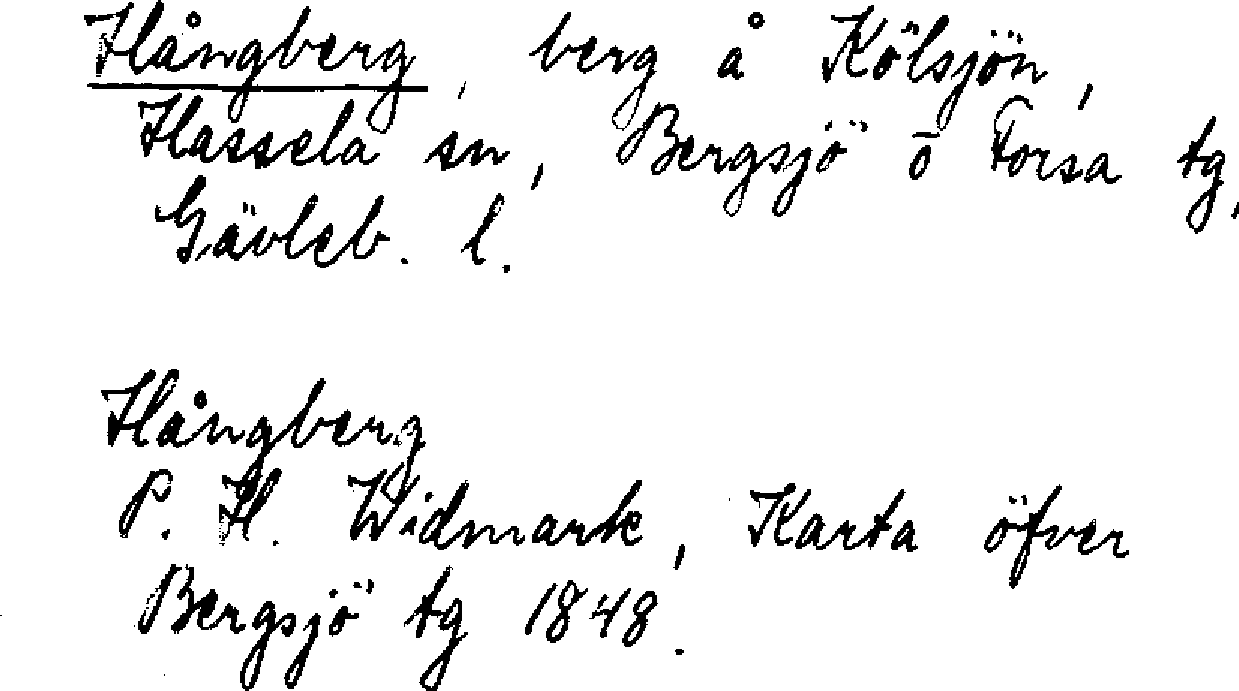 Hångberg, berg å Kölsjön,
Hassela sn, Bergsjö o Forsa tg,
Gävleb. l.
Hångberg
P. H. Widmark, Karta öfver
Bergsjö tg 1848.